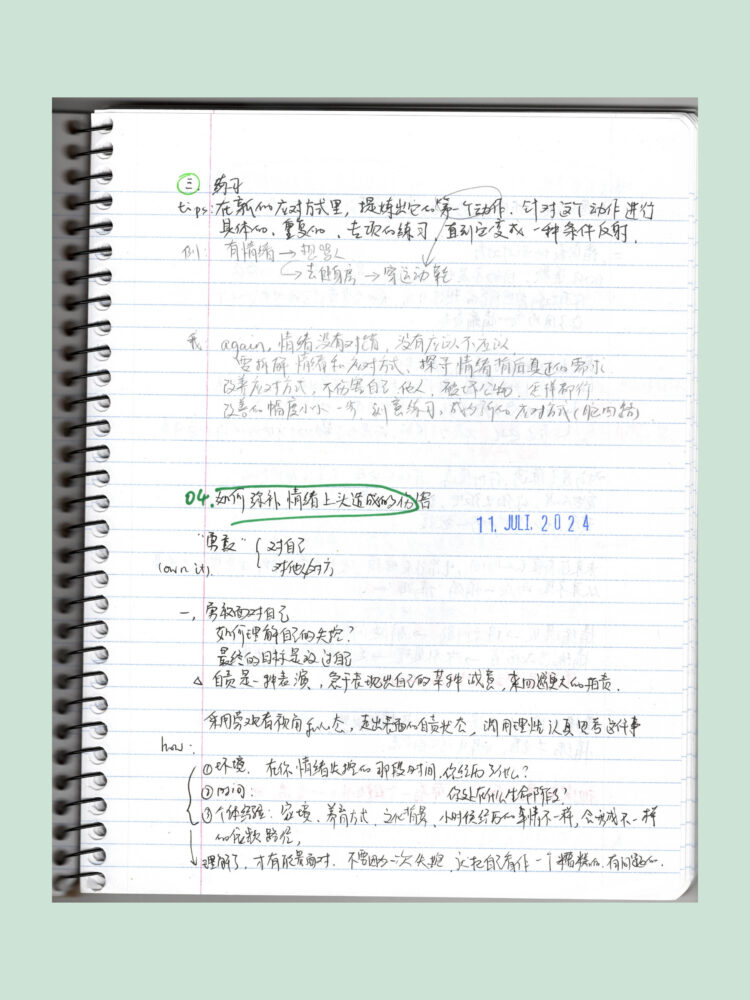 三、练习
tips: 在新的应对方式里，提炼出它的"第一个动作"，针对这个动作进行
具体的、重复的、专项的练习，直到它变成一种条件反射.
例: 有情绪→想骂人
→去健身房→穿运动鞋
我: again, 情绪没有对错，没有应该不应该
要拆解情绪和应对方式、探寻情绪背后真正的需求
改善应对方式，不伤害自己、他人、破坏公物，怎样都行
改善的幅度小小一步，刻意练习，成为新的应对方式(脑回路)
04. 如何弥补情绪上头造成的伤害
11. JULI. 2024
"勇敢" { 对自己
(own it). 对他人/对方
一, 勇敢面对自己
如何理解自己的失控?
最终的目标是放过自己
△ 自责是一种表演，急于表现出自己的某种诚意，来回避更大的指责.
采用旁观者视角和心态，走出表面的自责状态，调用理性认真思考这件事
how:
①环境. 在你情绪失控的那段时间，你经历了什么?
②时间 你处在什么生命阶段?
③个体经验: 家境、养育方式、文化背景、小时候经历的事情不一样，会形成不一样
的依赖路径,
→理解了，才有能量面对. 不要因为一次失控，认把自己看作一个糟糕的、有问题的.